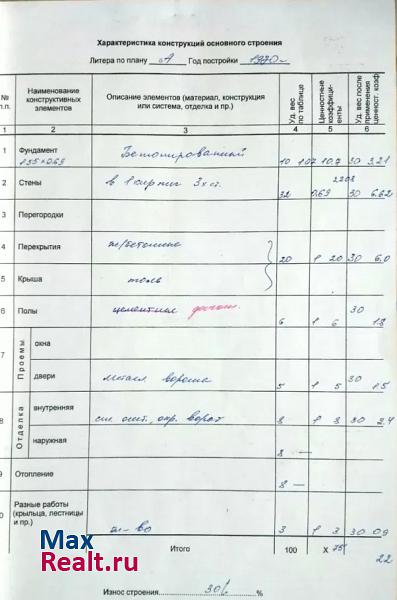 Характеристика конструкций основного строения
Литера по плану А Год постройки 1970г
№ п.п. Наименование конструктивных элементов Описание элементов (материал, конструкция или система, отделка и пр.) Уд. вес по таблице Ценностные коэффициенты Уд. вес после применения ценност. коэф.
1 2 3 4 5 6
1 Фундамент Бетонированный 10 1,07 10,7 30 3,21
2 Стены в 1 кирпич 3х ст. 32 0,69 2208 30 6.62
3 Перегородки
4 Перекрытия ж/бетонные 20 1 20 30 6.0
5 Крыша толь
6 Полы цементные 6 1 6 30 1.8
7 Проемы окна
двери металл ворота 5 1 5 30 1.5
8 Отделка внутренняя окр. ворот 8 1 8 30 2.4
наружная 8 —
9 Отопление 8 —
Разные работы (крыльца, лестницы и пр.) э-во 3 1 3 30 09
Итого 100 X 22
Износ строения 30% %
Max
Realt.ru